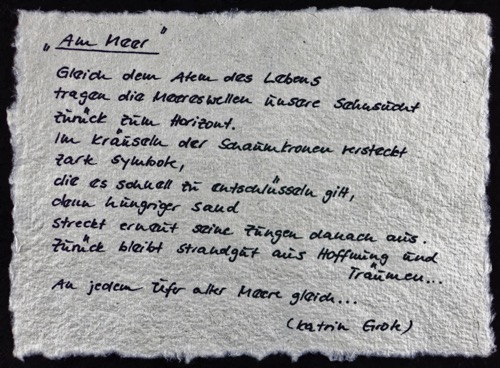 „Am Meer"
Gleich dem Atem des Lebens
tragen die Meereswellen unsere Sehnsucht
zurück zum Horizont.
Im Kräuseln der Schaumkronen versteckt
zarte Symbole,
die es schnell zu entschlüsseln gilt,
denn hungriger Sand
streckt erneut seine Zungen danach aus.
Zurück bleibt Strandgut aus Hoffnung und
Träumen...
An jedem Ufer aller Meere gleich...
(Katrin Grote)